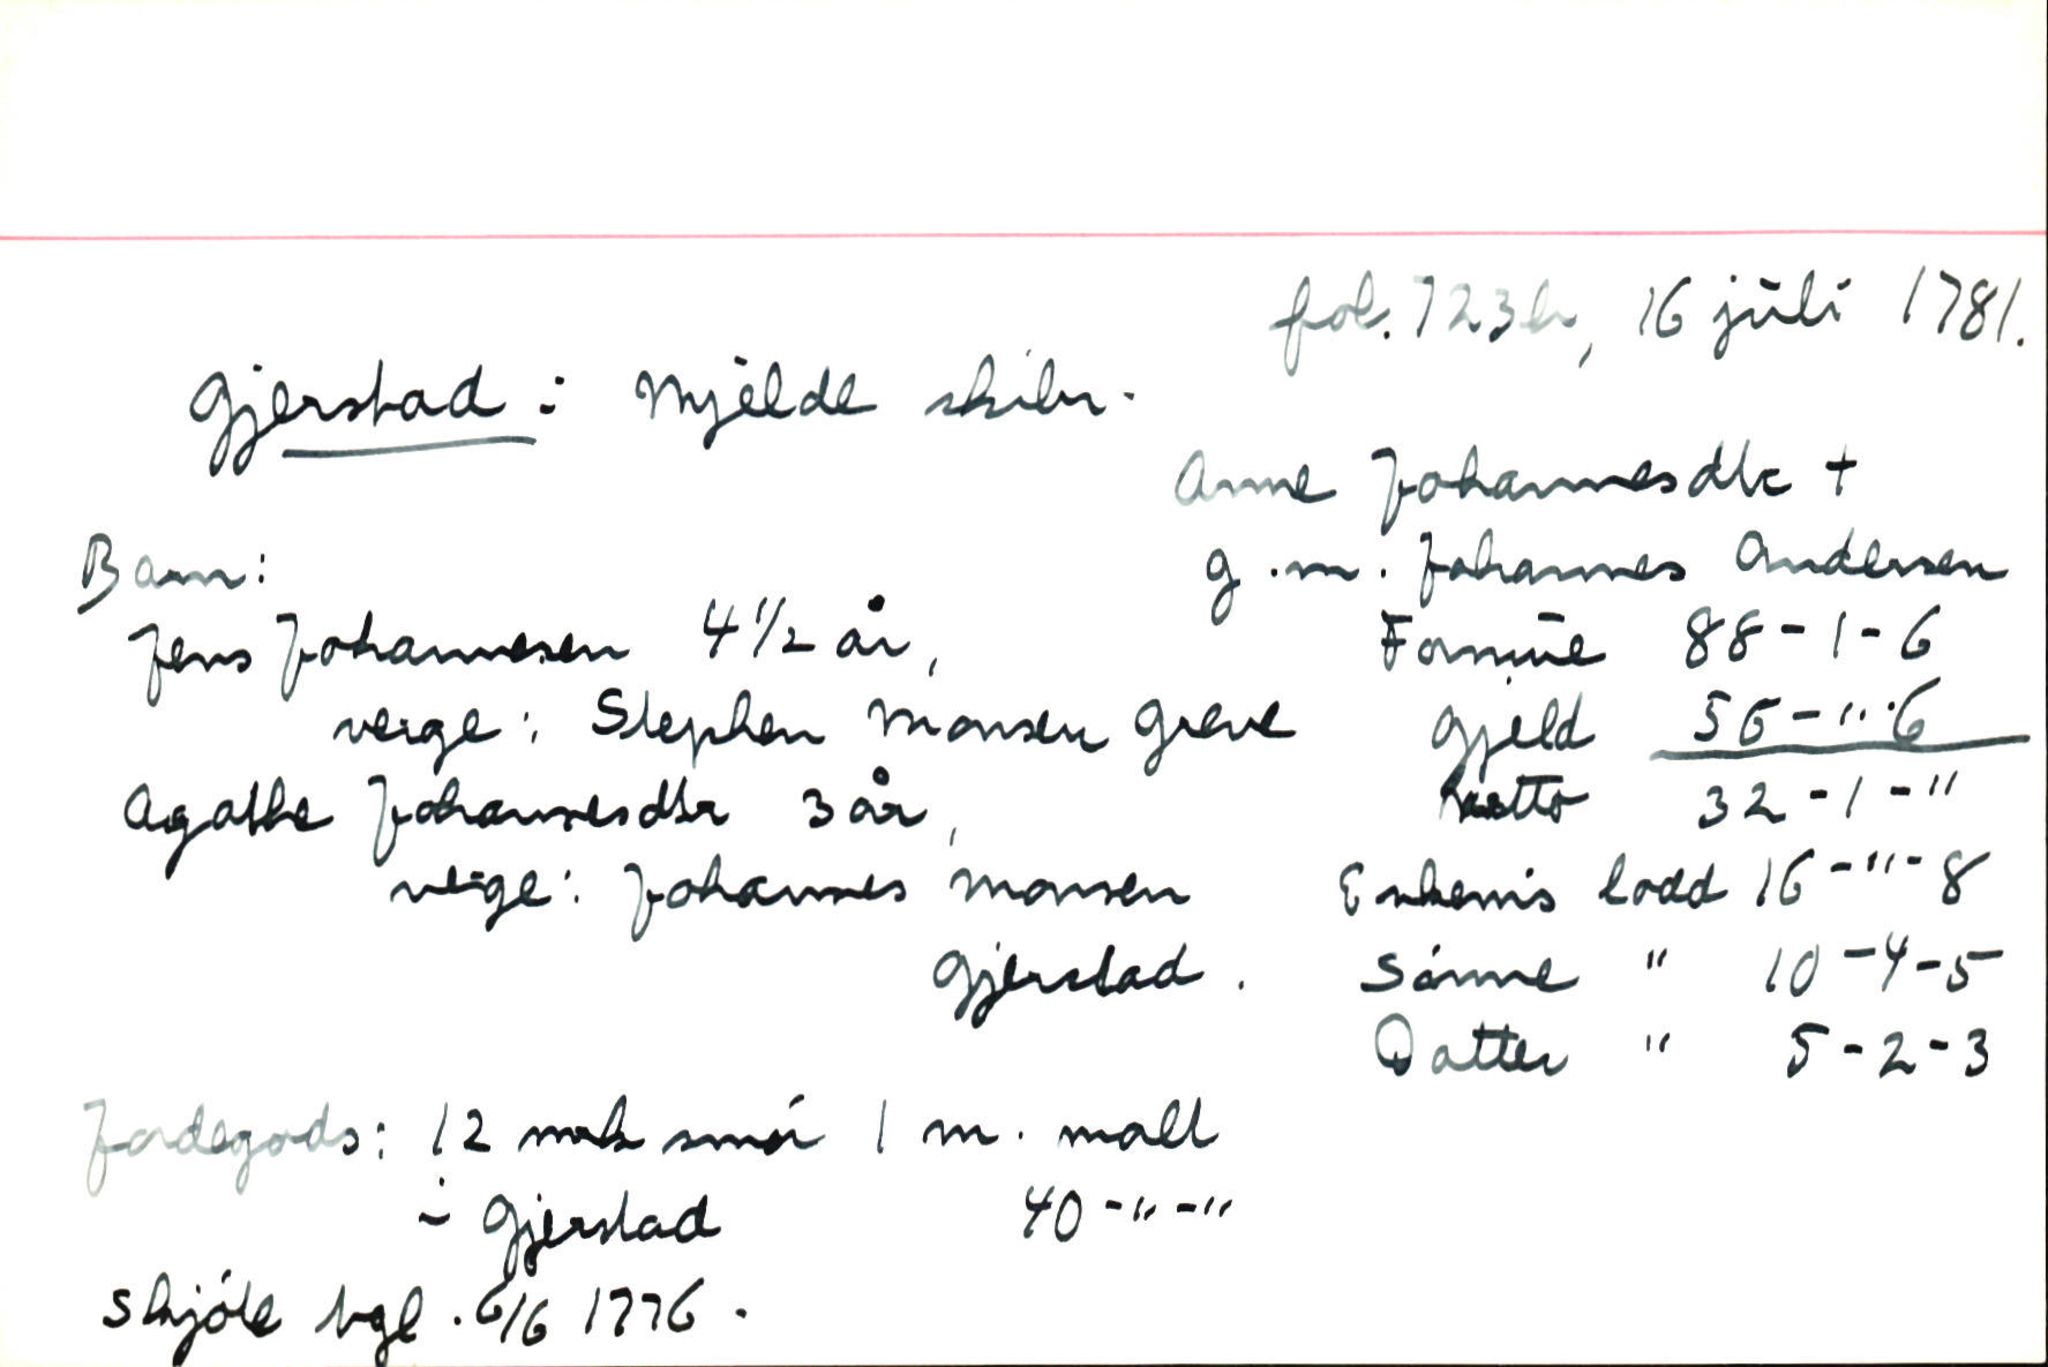 fol. 723b, 16 jūli 1781.
Gjerstad: Mjelde skibr.
Anne Johannesdtr +
Barn:
g.m. Johannes Andersen
Jens Johannesen 4 1/2 år,
Formūe 88-1-6
verge: Stephen Monsen Greve
Gjeld 56-"-6
Agathe Johannesdtr 3 år,
Netto 32-1-"
verge: Johannes Monsen
Enkem's lodd 16-"-8
Gjerstad.
Sønne " 10-4-5
Datter " 5-2-3
Jordegods: 12 mrk smør 1 m. malt
i Gjerstad 40-"-"
Skjøte tgl. 6/6 1776.